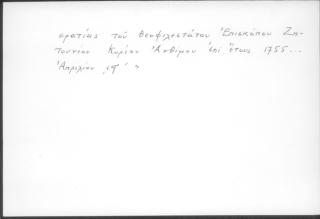 ερατίας τοῦ θεοφιλεστάτου Ἐπισκόπου Ζη-
τουνίου Κυρίου Ἀνθίμου ἐπὶ ἔτους 1755...
Ἀπριλίου